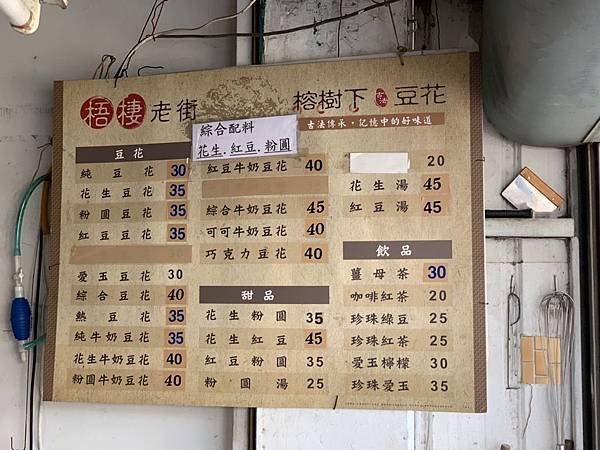 梧棲老街 榕樹下 古法 豆花
古法傳承，記憶中的好味道
綜合配料
花生.紅豆.粉圓
豆花
純豆花 30
花生豆花 35
粉圓豆花 35
紅豆豆花 35
愛玉豆花 30
綜合豆花 40
熱豆花 35
純牛奶豆花 35
花生牛奶豆花 40
粉圓牛奶豆花 40
紅豆牛奶豆花 40
綜合牛奶豆花 45
可可牛奶豆花 40
巧克力豆花 40
甜品
花生粉圓 35
花生紅豆 45
紅豆粉圓 35
粉圓湯 25
20
花生湯 45
紅豆湯 45
飲品
薑母茶 30
咖啡紅茶 20
珍珠綠豆 25
珍珠紅茶 25
愛玉檸檬 30
珍珠愛玉 35